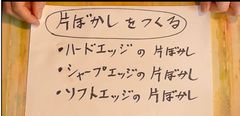 片ぼかしをつくる
・ハードエッジの片ぼかし
・シャープエッジの片ぼかし
・ソフトエッジの片ぼかし